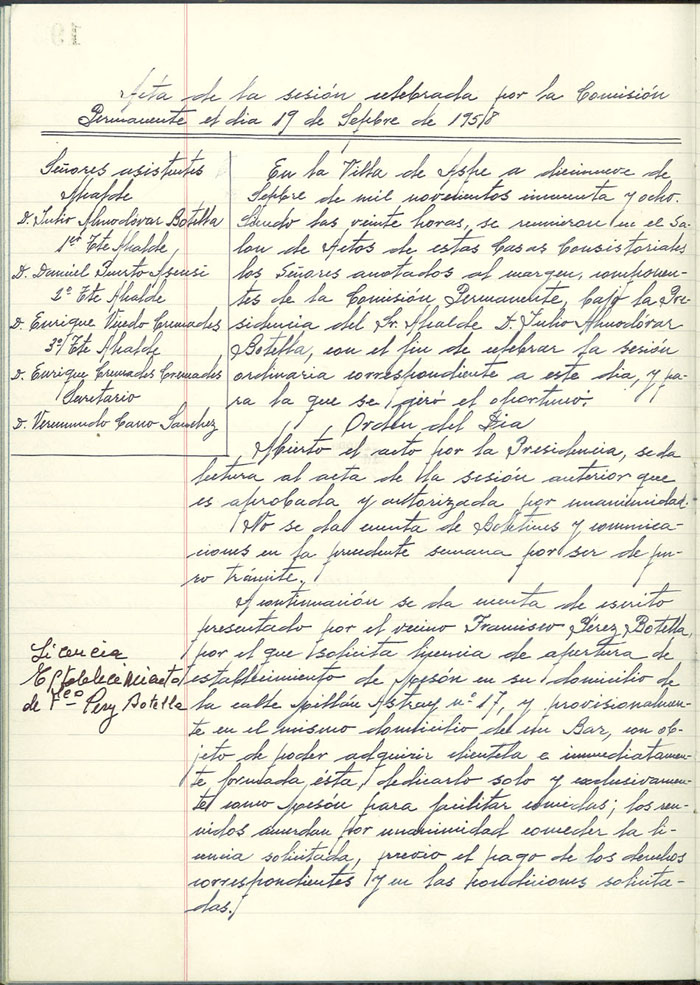 Acta de la sesión celebrada por la Comisión
Permanente el dia 19 de Sepbre de 1958
Señores asistentes
Alcalde
D. Julio Almodóvar Botella
1er Tte Alcalde
D. Daniel Puerto Asensi
2º Tte Alcalde
D. Enrique Vicedo Cremades
3º Tte Alcalde
D. Enrique Cremades Cremades
Secretario
D. Veremundo Cano Sanchez
En la Villa de Aspe a diecinueve de
Sepbre de mil novecientos cincuenta y ocho.
Siendo las veinte horas, se reunieron en el Sa-
lon de Actos de estas Casas Consistoriales
los Señores anotados al margen, componen-
tes de la Comisión Permanente, bajo la Pre-
sidencia del Sr. Alcalde D. Julio Almodóvar
Botella, con el fin de celebrar la sesión
ordinaria correspondiente a este dia, y pa-
ra la que se giró el oportuno.
Orden del Dia
Abierto el acto por la Presidencia, se da
lectura al acta de la sesión anterior que
es aprobada y autorizada por unanimidad.
No se da cuenta de Boletines y comunica-
ciones en la precedente semana por ser de pu-
ro trámite.
A continuación se da cuenta de escrito
presentado por el vecino Francisco Pérez Botella,
por el que solicita licencia de apertura de
establecimiento de Mesón en su domicilio de
la calle Millán Astray nº 17, y provisionalmen-
te en el mismo domicilio de un Bar, con ob-
jeto de poder adquirir clientela e inmediatamen-
te formada ésta, dedicarlo solo y exclusivamen-
te como Mesón para facilitar comidas; los reu-
nidos acuerdan por unanimidad conceder la li-
cencia solicitada, previo el pago de los derechos
correspondientes y en las condiciones solicita-
das.
Licencia
Establecimiento
de Fco Perez Botella